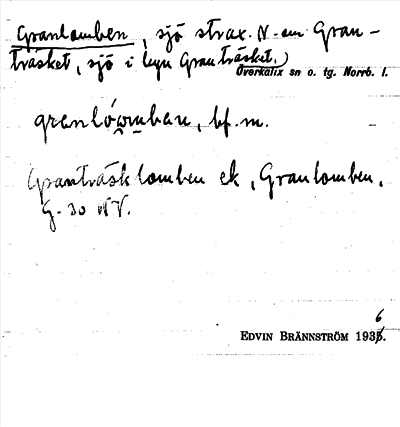 Granlomben, sjö strax N-om Gran-
träsket, sjö i byn Granträsket.)
Överkalix sn o. tg. Norrb. l.
granlówmban, bf. m.
Granträsklomben ek, Granlomben,
G. 30 NV.
EDVIN BRÄNNSTRÖM 1936.